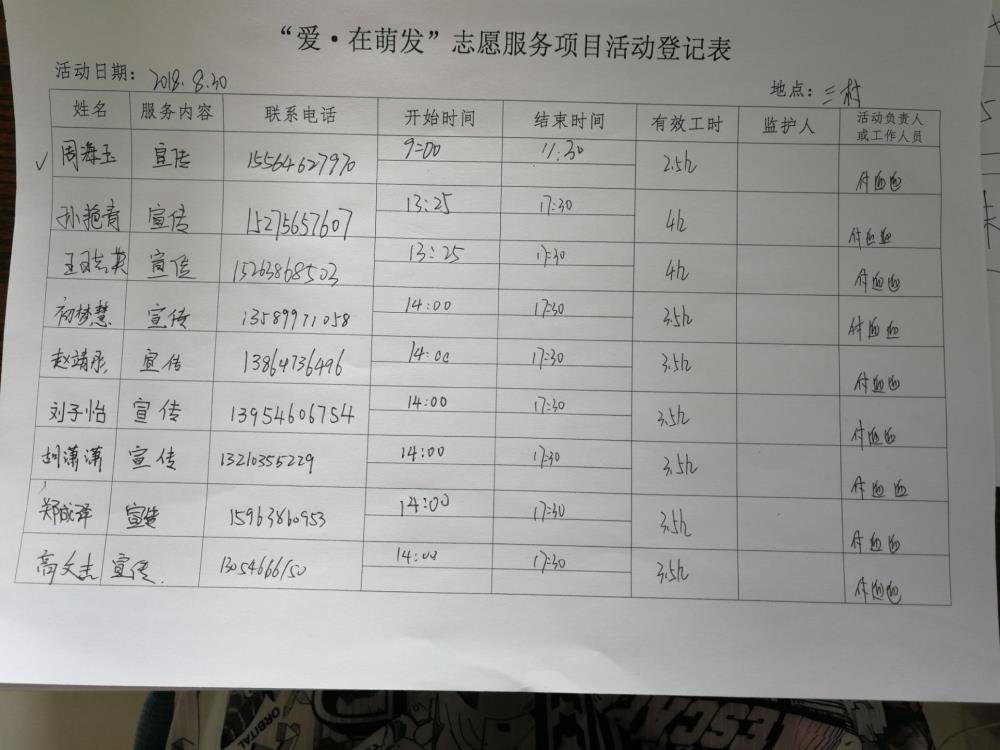 “爱·在萌发”志愿服务项目活动登记表
活动日期： 2018.8.30 地点：三村
姓名 服务内容 联系电话 开始时间 结束时间 有效工时 监护人 活动负责人或工作人员
√ 周海玉 宣传 15564627970 9:00 11:30 2.5h
孙艳青 宣传 15275657607 13:25 17:30 4h
宣传 15263868503 13:25 17:30 4h
初梦慧 宣传 13589971058 14:00 17:30 3.5h
赵靖 宣传 13864736496 14:00 17:30 3.5h
刘子怡 宣传 13954606754 14:00 17:30 3.5h
胡潇潇 宣传 13210355229 14:00 17:30 3.5h
郑成泽 宣传 15963860953 14:00 17:30 3.5h
高文志 宣传. 13054666150 14:00 17:30 3.5h
ORBITAL
ESCAP